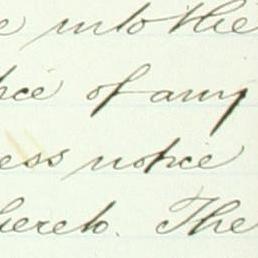 e into the
nce of any
ess notice
hereto. The